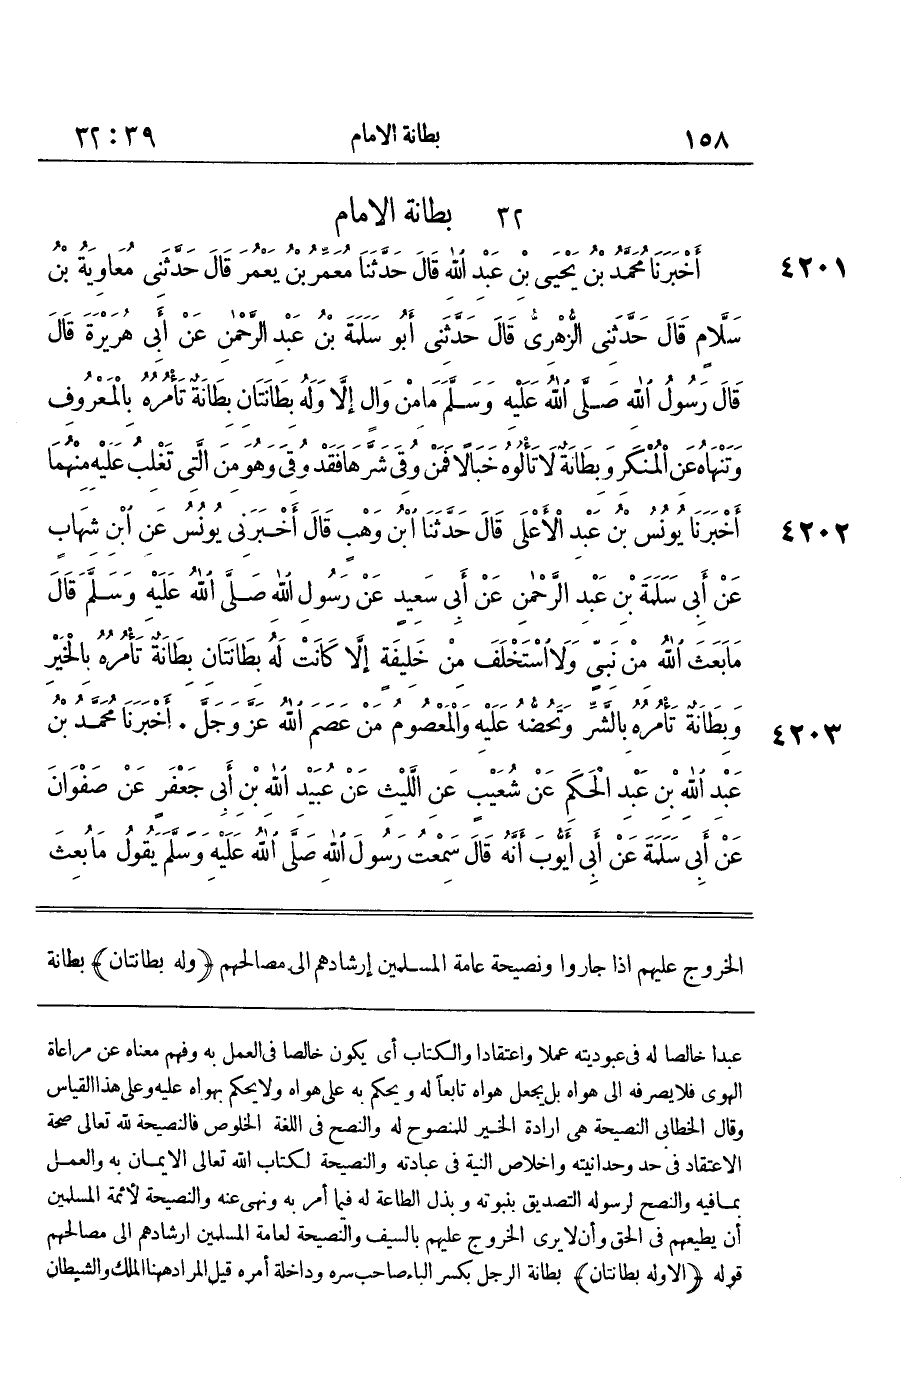 ١٥٨ بطانة الامام ٣٩ : ٣٢
٣٢ بطانة الامام
٤٢٠١ أَخْبَرَنَا مُحَمَّدُ بْنُ يَحْيَى بْنِ عَبْدِ اللّٰهِ قَالَ حَدَّثَنَا مُعَمَّرُ بْنُ يَعْمُرَ قَالَ حَدَّثَنِى مُعَاوِيَةُ بْنُ
سَلَّامٍ قَالَ حَدَّثَنِى الزُّهْرِىُّ قَالَ حَدَّثَنِى أَبُو سَلَمَةَ بْنُ عَبْدِ الرَّحْمٰنِ عَنْ أَبِى هُرَيْرَةَ قَالَ
قَالَ رَسُولُ اللّٰهِ صَلَّى اللّٰهُ عَلَيْهِ وَسَلَّمَ مَا مِنْ وَالٍ إِلَّا وَلَهُ بِطَانَتَانِ بِطَانَةٌ تَأْمُرُهُ بِالْمَعْرُوفِ
وَتَنْهَاهُ عَنِ الْمُنْكَرِ وَبِطَانَةٌ لَا تَأْلُوهُ خَبَالًا فَمَنْ وُقِىَ شَرَّهَا فَقَدْ وُقِىَ وَهُوَ مِنَ الَّتِى تَغْلِبُ عَلَيْهِ مِنْهُمَا
٤٢٠٢ أَخْبَرَنَا يُونُسُ بْنُ عَبْدِ الْأَعْلَى قَالَ حَدَّثَنَا ابْنُ وَهْبٍ قَالَ أَخْبَرَنِى يُونُسُ عَنِ ابْنِ شِهَابٍ
عَنْ أَبِى سَلَمَةَ بْنِ عَبْدِ الرَّحْمٰنِ عَنْ أَبِى سَعِيدٍ عَنْ رَسُولِ اللّٰهِ صَلَّى اللّٰهُ عَلَيْهِ وَسَلَّمَ قَالَ
مَا بَعَثَ اللّٰهُ مِنْ نَبِىٍّ وَلَا اسْتَخْلَفَ مِنْ خَلِيفَةٍ إِلَّا كَانَتْ لَهُ بِطَانَتَانِ بِطَانَةٌ تَأْمُرُهُ بِالْخَيْرِ
٤٢٠٣ وَبِطَانَةٌ تَأْمُرُهُ بِالشَّرِّ وَتَحُضُّهُ عَلَيْهِ وَالْمَعْصُومُ مَنْ عَصَمَ اللّٰهُ عَزَّ وَجَلَّ . أَخْبَرَنَا مُحَمَّدُ بْنُ
عَبْدِ اللّٰهِ بْنِ عَبْدِ الْحَكَمِ عَنْ شُعَيْبٍ عَنِ اللَّيْثِ عَنْ عُبَيْدِ اللّٰهِ بْنِ أَبِى جَعْفَرٍ عَنْ صَفْوَانَ
عَنْ أَبِى سَلَمَةَ عَنْ أَبِى أَيُّوبَ أَنَّهُ قَالَ سَمِعْتُ رَسُولَ اللّٰهِ صَلَّى اللّٰهُ عَلَيْهِ وَسَلَّمَ يَقُولُ مَا بُعِثَ
الخروج عليهم اذا جاروا ونصيحة عامة المسلمين إرشادهم الى مصالحهم ﴿وله بطانتان﴾ بطانة
عبدا خالصا له فى عبوديته عملا واعتقادا والكتاب أى يكون خالصا فى العمل به وفهم معناه عن مراعاة
الهوى فلا يصرفه الى هواه بل يجعل هواه تابعاً له ويحكم به على هواه ولا يحكم بهواه عليه وعلى هذا القياس
وقال الخطابى النصيحة هى ارادة الخير للمنصوح له والنصح فى اللغة الخلوص فالنصيحة لله تعالى صحة
الاعتقاد فى حد وحدانيته واخلاص النية فى عبادته والنصيحة لكتاب الله تعالى الايمان به والعمل
بما فيه والنصح لرسوله التصديق بنبوته وبذل الطاعة له فيما أمر به ونهى عنه والنصيحة لأئمة المسلمين
أن يطيعهم فى الحق وأن لا يرى الخروج عليهم بالسيف والنصيحة لعامة المسلمين ارشادهم الى مصالحهم
قوله ﴿الا وله بطانتان﴾ بطانة الرجل بكسر الباء صاحب سره وداخلة أمره قيل المراد ههنا الملك والشيطان